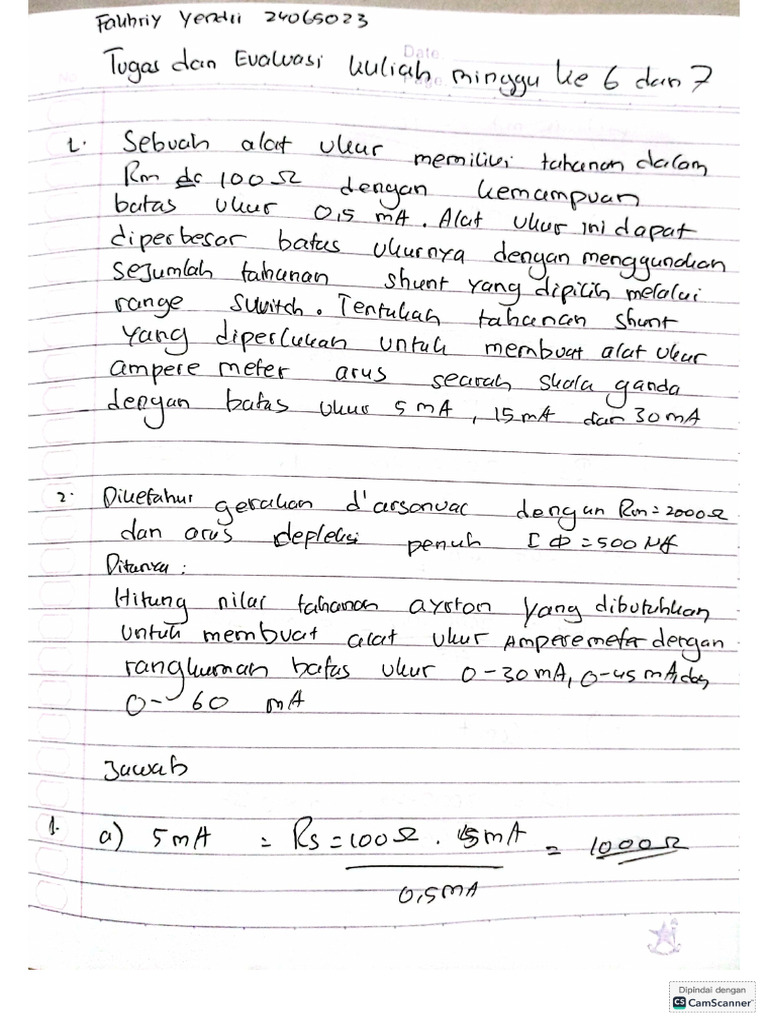 Fakhriy Yendri 24065023
Date
Tugas dan Evaluasi kuliah minggu ke 6 dan 7
1. Sebuah alat ukur memiliki tahanan dalam
Rm dc 100 Ω dengan kemampuan
batas ukur 0,5 mA. Alat ukur ini dapat
diperbesar batas ukurnya dengan menggunakan
sejumlah tahanan shunt yang dipilih melalui
range switch. Tentukah tahanan shunt
yang diperlukan untuk membuat alat ukur
ampere meter arus searah skala ganda
dengan batas ukur 5 mA, 15 mA dan 30 mA
2. Diketahui gerakan d'arsonval dengan Rm = 2000 Ω
dan arus depleksi penuh I Φ = 500 MA
Ditanya :
Hitung nilai tahanan ayrton yang dibutuhkan
untuk membuat alat ukur Amperemeter dengan
rangkuman batas ukur 0-30 mA, 0-45 mA, dan
0-60 mA
Jawab
1. a) 5 mA = Rs = 100 Ω . 5 mA = 1000 Ω
0,5 mA
Dipindai dengan
CS CamScanner